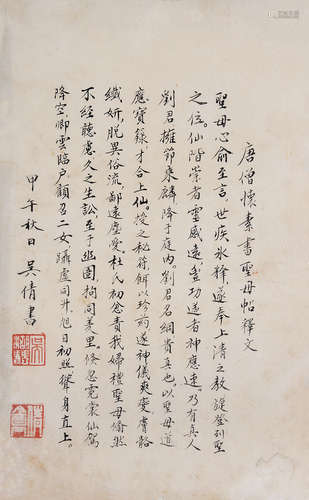 唐僧懷素書聖母帖釋文
聖母心俞至言，世疾冰釋，遂奉上清之教，旋登列聖
之位。仙階崇者靈感遠，豐功邁者神應速。乃有真人
劉君，擁節乘麟，降于庭內。劉君名綱，貴真也，以聖母道
應寶籙，才合上仙。授之秘符，餌以珍藥，遂神儀爽變，膚骼
纖妍，脫異俗流，鄙遠塵愛。杜氏初忿，責我婦禮，聖母翛然
不經聽慮。久之生訟，至于幽圄，拘同羑里。倏忽霓裳仙駕
降空，卿雲臨户，顧召二女，躡虛同升。旭日初照，聳身直上。
甲午秋日 吳倩書